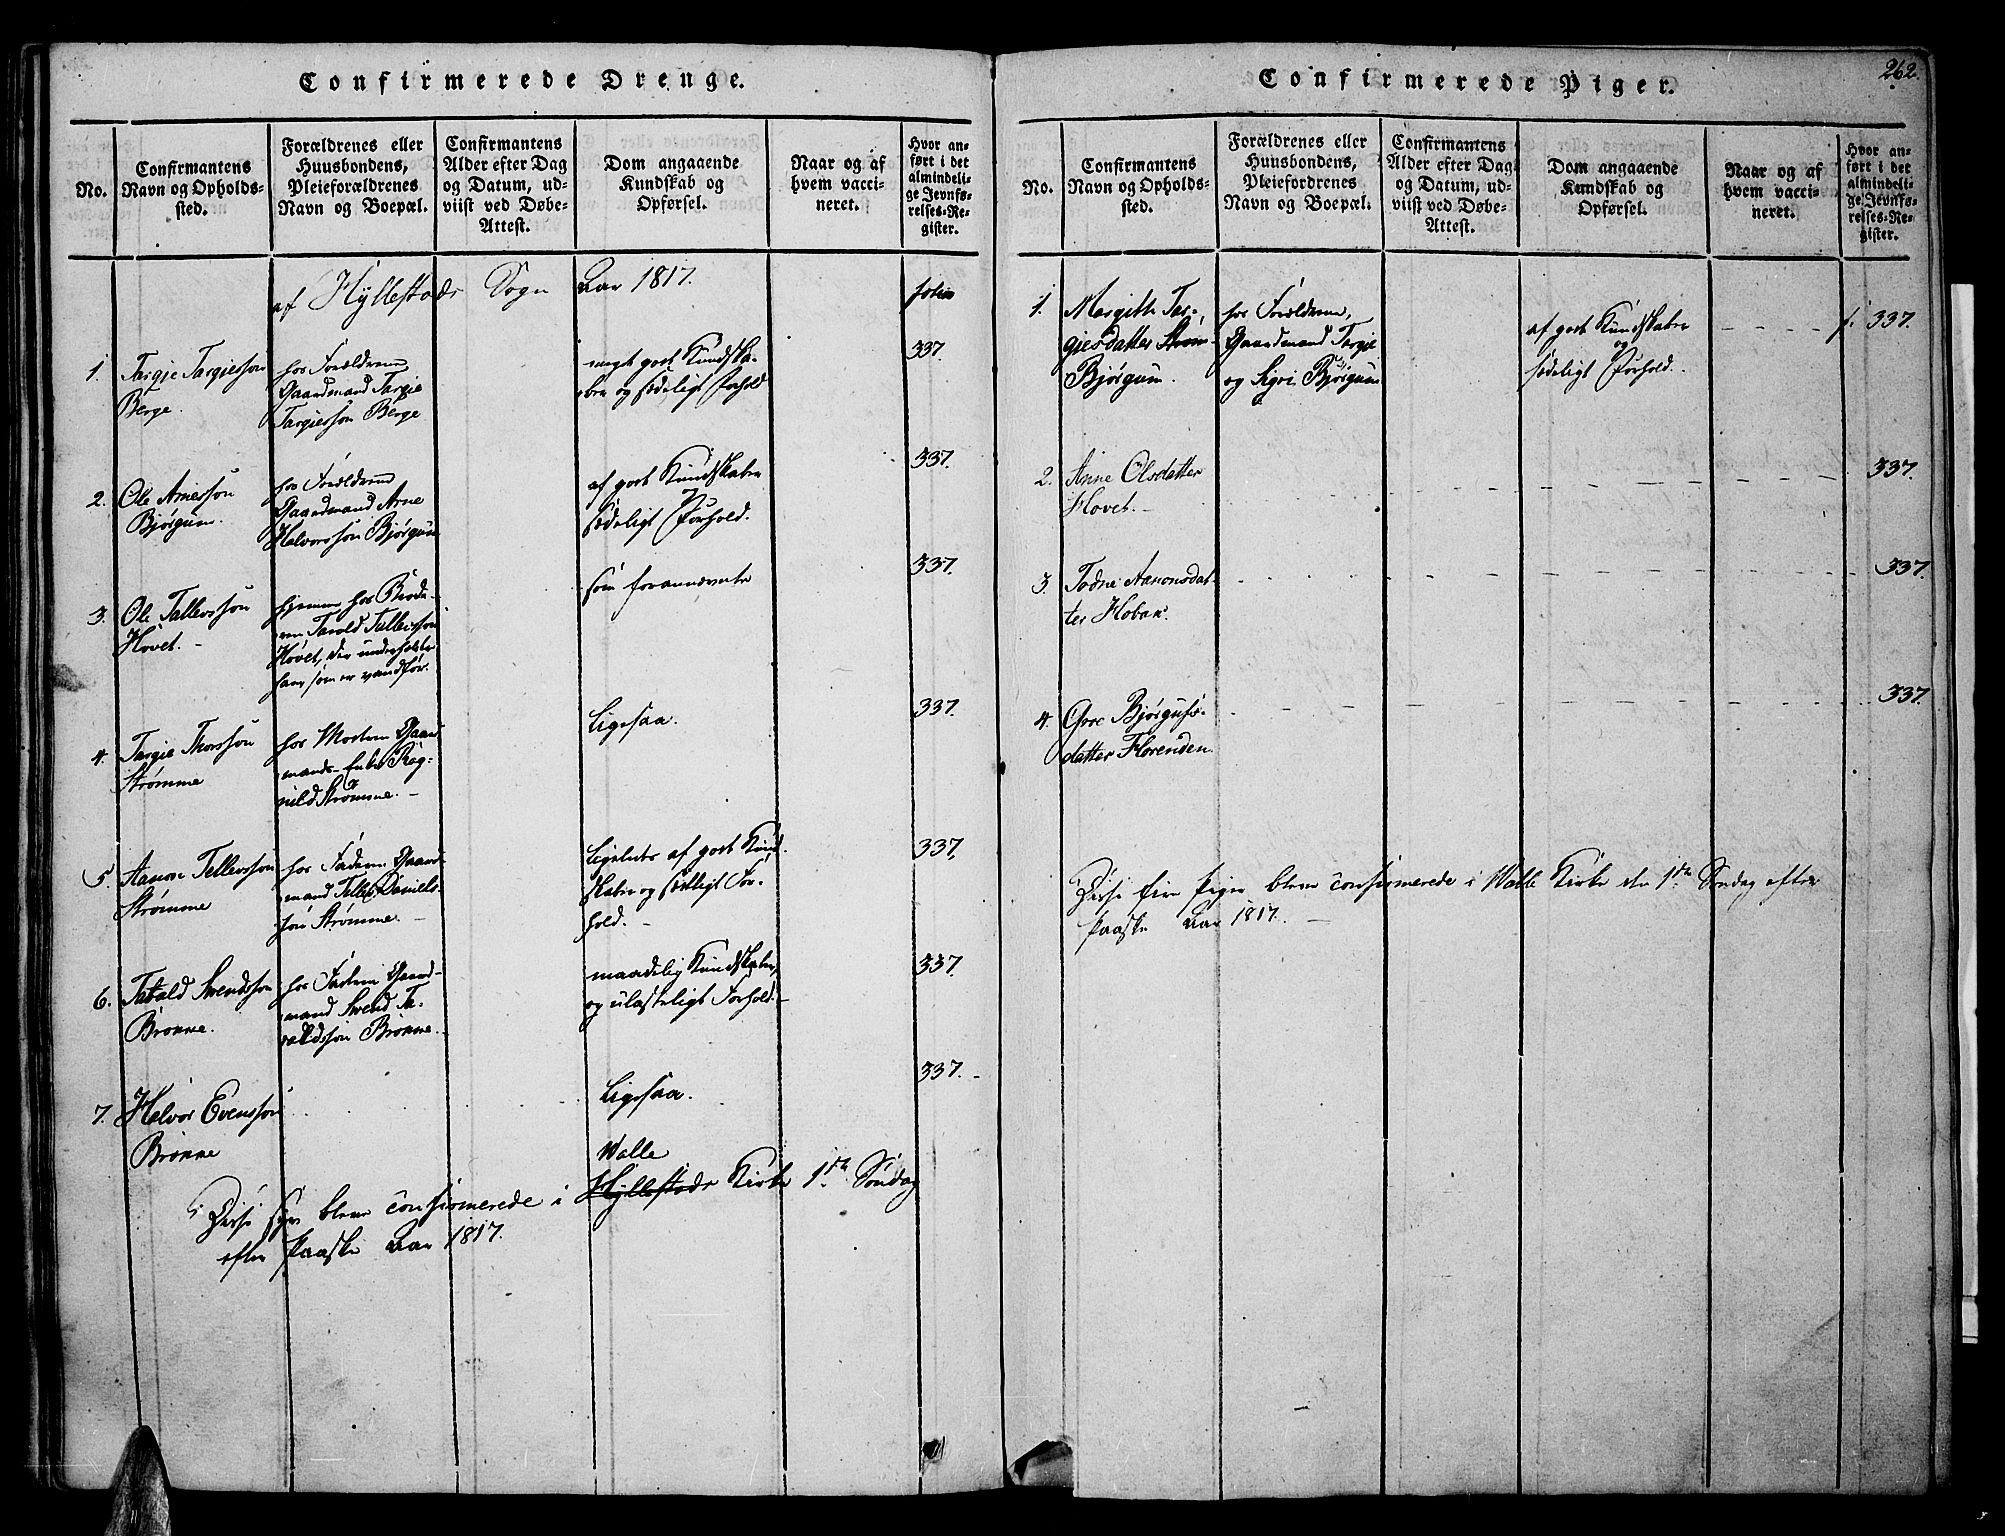 Confirmerede Drenge.
No.
Confirmantens
Navn og Opholds-
sted.
Forældrenes eller
Huusbondens,
Pleieforældrenes
Navn og Boepæl.
Confirmantens
Alder efter Dag
og Datum, ud-
viist ved Døbe-
Attest.
Dom angaaende
Kundskab og
Opførsel.
Naar og af
hvem vacci-
neret.
Hvor an-
ført i det
almindeli-
ge Jevnfø-
relses-Re-
gister.
af Hyllestads Sogn Aar 1817.
folio
1.
Targie Targiesson
Berge.
hos Forældrene
Gaardmand Targie
Targiesson Berge
meget godt Kundska-
ber og sædeligt Forhold
337.
2.
Ole Arnesson
Bjørgum.
hos Forældrene
Gaardmand Arne
Halvorsson Bjørgum
af godt Kundskaber
sædeligt Forhold.
337.
3.
Ole Tallevsson
Hovet. -
hjemme hos Brode-
ren Tarald Tallevsson
Hovet, der underholder
ham som er vanfør.
som forannævnte
337.
4.
Targie Thorsson
Strømme
hos Moderen Gaard
mands-Enke Rag-
nild Strømme. -
Ligesaa.
337.
5.
Aanon Tellevsson
Strømme
hos Faderen Gaard-
mand Tellef Daniels-
søn Strømme. -
Ligeledes af godt Kund-
skaber og sædeligt For-
hold. -
337.
6.
Tarald Svendsson
Brønne.
hos Faderen Gaard-
mand Svend Ta-
raldsson Brønne.
maadelig Kundskaber,
og ulasteligt Forhold. -
337.
7.
Halvor Evensson
Brønne
Ligesaa.
337. -
Walle
Disse syv bleve confirmerede i Hyllestads Kirke 1ste Søndag
efter Paaske Aar 1817.
262.
Confirmerede Piger.
No.
Confirmantens
Navn og Opholds-
sted.
Forældrenes eller
Huusbondens,
Pleiefordrenes
Navn og Boepæl.
Confirmantens
Alder efter Dag
og Datum, ud-
viist ved Døbe-
Attest.
Dom angaaende
Kundskab og
Opførsel.
Naar og af
hvem vacci-
neret.
Hvor an-
ført i det
almindeli-
ge Jevnfø-
relses-Re-
gister.
1.
Margith Tar-
giesdatter Strøm-
Bjørgum.
hos Forældrene,
Gaardmand Targie
og Sigri Bjørgum
af godt Kundskaber
og
sædeligt Forhold.
f. 337.
2.
Anne Olsdatter
Hovet. -
337.
3.
Todne Aanonsdat-
ter Hoban.
337.
4.
Gore Bjørgufs-
datter Florenden.
337.
Disse fire Piger bleve confirmerede i Walle Kirke den 1ste Søndag efter
Paaske Aar 1817. -